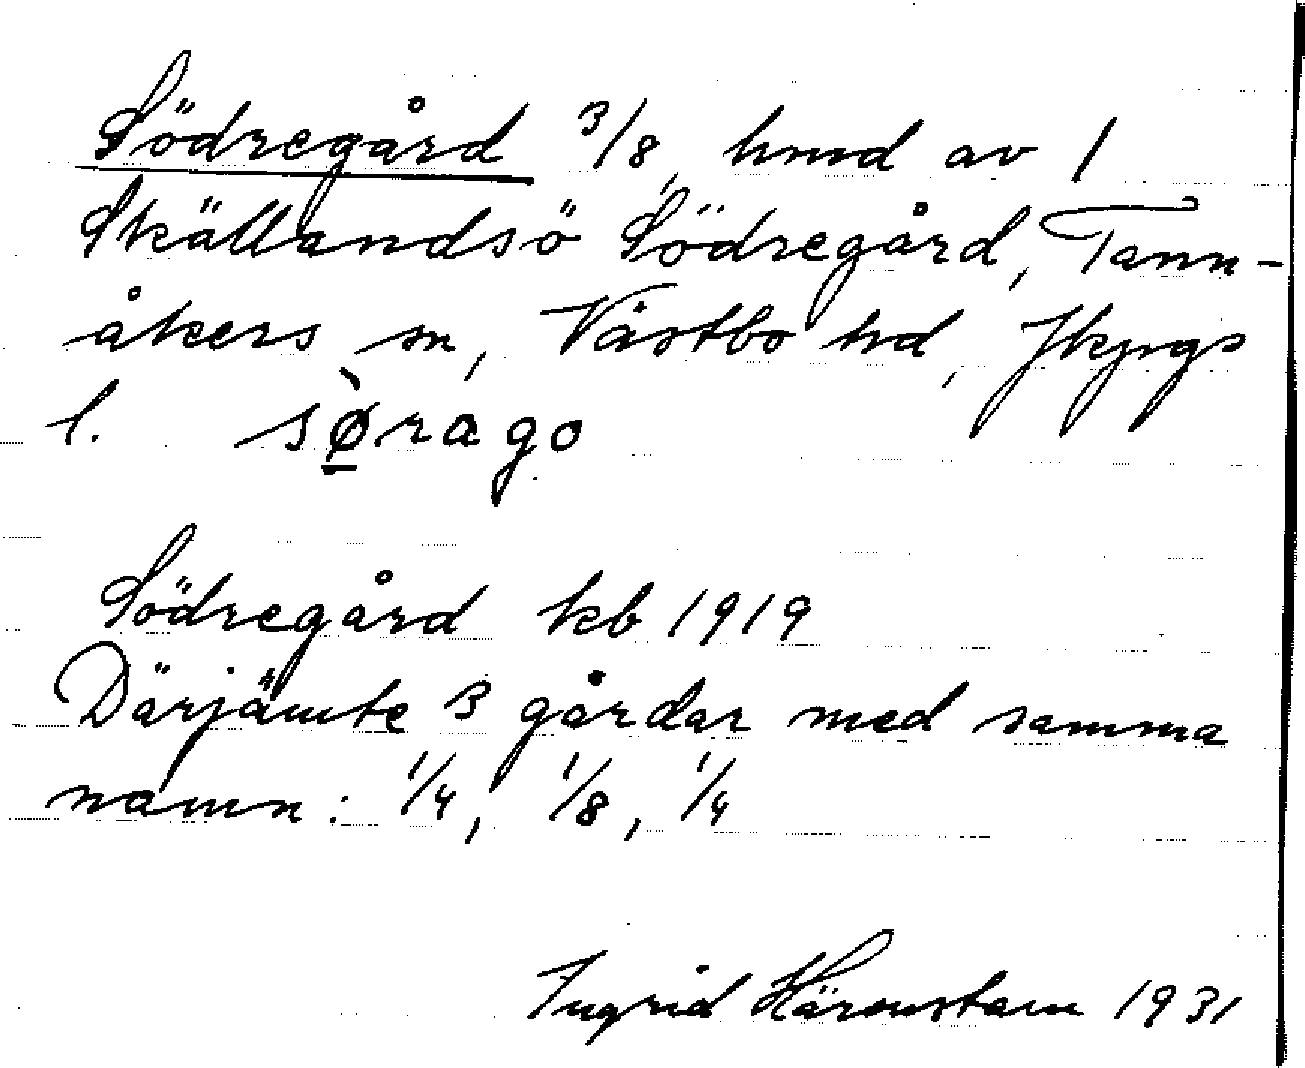 Södregård 3/8 hmd av 1
Skällandsö Södregård, Tann-
åkers sn, Västbo hd, Jkpgs
l. sø̲̀rago
Södregård kb 1919
Därjämte 3 gårdar med samma
namn: 1/4, 1/8, 1/4
Ingrid Härenstam 1931